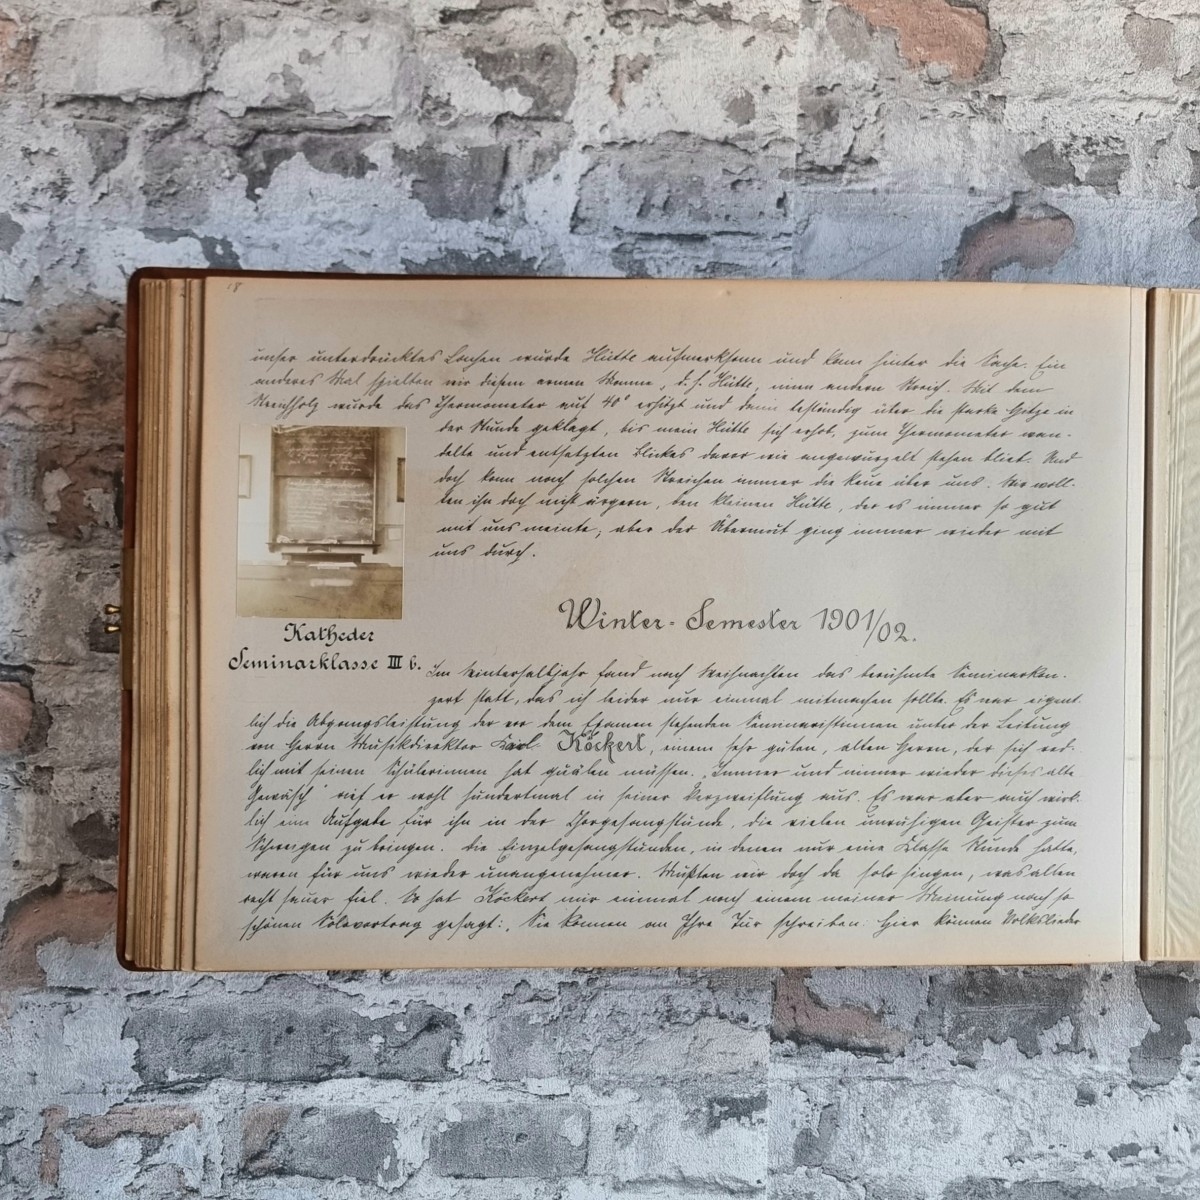 18
unser unterdrücktes Lachen wurde Hütte aufmerksam und kam hinter die Sache. Ein
anderes Mal spielten wir diesem armen Manne, d. h. Hütte, einen andern Streich. Mit dem
Streichholz wurde das Thermometer auf 40° erhitzt und dann beständig über die starke Hitze in
der Stunde geklagt, bis mein Hütte sich erhob, zum Thermometer wan-
delte und entsetzten Blickes davor wie angewurzelt stehen blieb. Und
doch kam nach solchen Streichen immer die Reue über uns. Wir woll-
ten ihn doch nicht ärgern, den kleinen Hütte, der es immer so gut
mit uns meinte, aber der Übermut ging immer wieder mit
uns durch.
Katheder
Seminarklasse III b.
Winter-Semester 1901/02.
Im Winterhalbjahr fand nach Weihnachten das berühmte Seminarkon-
zert statt, das ich leider nur einmal mitmachen sollte. Es war eigent-
lich die Abgangsleistung der vor dem Examen stehenden Seminaristinnen unter der Leitung
von Herrn Musikdirektor Karl Köckert, einem sehr guten, alten Herrn, der sich red-
lich mit seinen Schülerinnen hat quälen müssen. „Immer und immer wieder dieses alte
Gewäsch" rief er wohl hundertmal in seiner Verzweiflung aus. Es war aber auch wirk-
lich eine Aufgabe für ihn in der Chorgesangstunde, die vielen unruhigen Geister zum
Schweigen zu bringen. Die Einzelgesangstunden, in denen nur eine Klasse Stunde hatte,
waren für uns wieder unangenehmer. Mußten wir doch da solo singen, was allen
recht sauer fiel. So hat Köckert mir einmal nach einem meiner Meinung nach so
schönen Solovortrag gesagt: „Sie können an Ihre Tür schreiben: Hier können Volkslieder